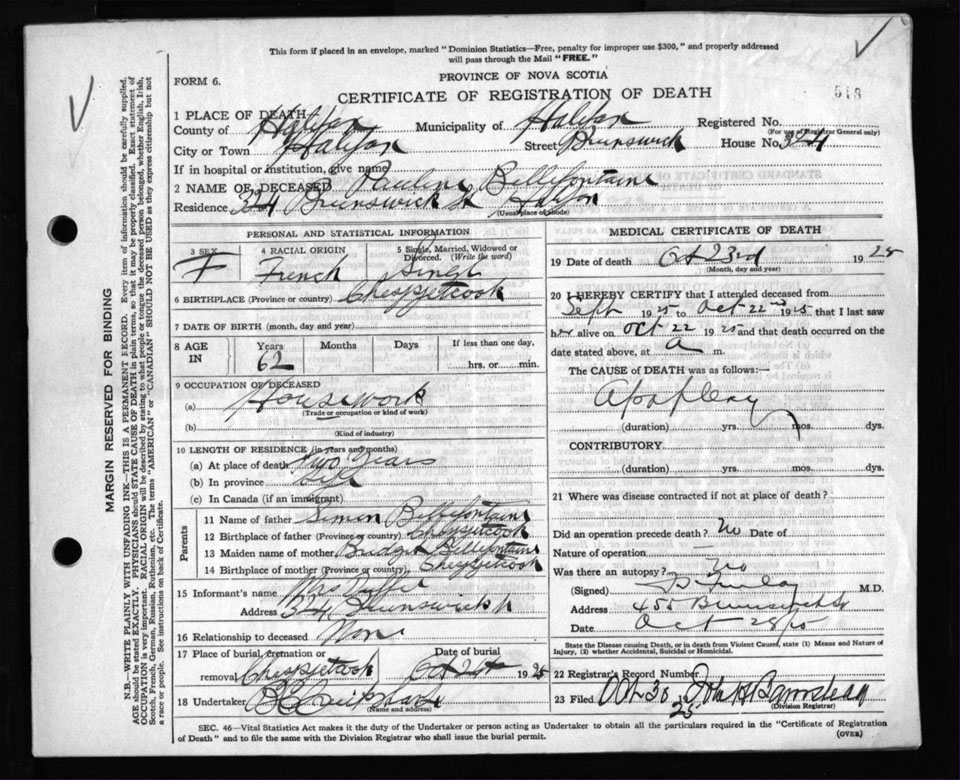 This form if placed in an envelope, marked "Dominion Statistics—Free, penalty for improper use $300," and properly addressed
will pass through the Mail "FREE."
FORM 6.
PROVINCE OF NOVA SCOTIA
CERTIFICATE OF REGISTRATION OF DEATH
518
1 PLACE OF DEATH
County of Halifax Municipality of Halifax Registered No.
(For use of Registrar General only)
City or Town Halifax Street Brunswick House No. 324
If in hospital or institution, give name
2 NAME OF DECEASED Pauline Bellefontaine
Residence 324 Brunswick St Halifax
(Usual place of abode)
PERSONAL AND STATISTICAL INFORMATION
3 SEX F
4 RACIAL ORIGIN French
5 Single, Married, Widowed or Divorced. (Write the word) Single
6 BIRTHPLACE (Province or country) Chezzetcook
7 DATE OF BIRTH (month, day and year)
8 AGE IN Years 62 Months Days If less than one day, hrs. or min.
9 OCCUPATION OF DECEASED
(a) Housework
(Trade or occupation or kind of work)
(b)
(Kind of industry)
10 LENGTH OF RESIDENCE (in years and months)
(a) At place of death Two Years
(b) In province Life
(c) In Canada (if an immigrant)
Parents
11 Name of father Simon Bellefontaine
12 Birthplace of father (Province or country) Chezzetcook
13 Maiden name of mother Bellefontaine
14 Birthplace of mother (Province or country) Chezzetcook
15 Informant's name Mrs
Address 324 Brunswick
16 Relationship to deceased None
17 Place of burial, cremation or removal Chezzetcook Date of burial Oct 24 1925
18 Undertaker
(Name and address)
MEDICAL CERTIFICATE OF DEATH
19 Date of death Oct 23rd 1925
(Month, day and year)
20 I HEREBY CERTIFY that I attended deceased from
Sept 1925 to Oct 22nd 1925 that I last saw
her alive on Oct 22 1925 and that death occurred on
date stated above, at a m.
The CAUSE of DEATH was as follows:—
Apoplexy
(duration) yrs. mos. dys.
CONTRIBUTORY
(duration) yrs. mos. dys.
21 Where was disease contracted if not at place of death?
Did an operation precede death? No Date of
Nature of operation —
Was there an autopsy? No
(Signed) M.D.
Address 455 Brunswick St
Date Oct
State the Disease causing Death, or in death from Violent Causes, state (1) Means and Nature of
Injury, (2) whether Accidental, Suicidal or Homicidal.
22 Registrar's Record Number
23 Filed Oct 30 1925 John H Barnstead
(Division Registrar)
SEC. 46—Vital Statistics Act makes it the duty of the Undertaker or person acting as Undertaker to obtain all the particulars required in the "Certificate of Registration
of Death" and to file the same with the Division Registrar who shall issue the burial permit.
(OVER)
MARGIN RESERVED FOR BINDING
N.B.—WRITE PLAINLY WITH UNFADING INK—THIS IS A PERMANENT RECORD. Every item of information should be carefully supplied.
AGE should be stated EXACTLY. PHYSICIANS should STATE CAUSE OF DEATH in plain terms, so that it may be properly classified. Exact statement of
OCCUPATION is very important. RACIAL ORIGIN will be described by stating to what people or tongue the deceased person belonged, whether English, Irish,
Scotch, French, German, Russian, Ruthenian, etc. The terms "AMERICAN" or "CANADIAN" SHOULD NOT BE USED as they express citizenship but not
a race or people. See instructions on back of Certificate.